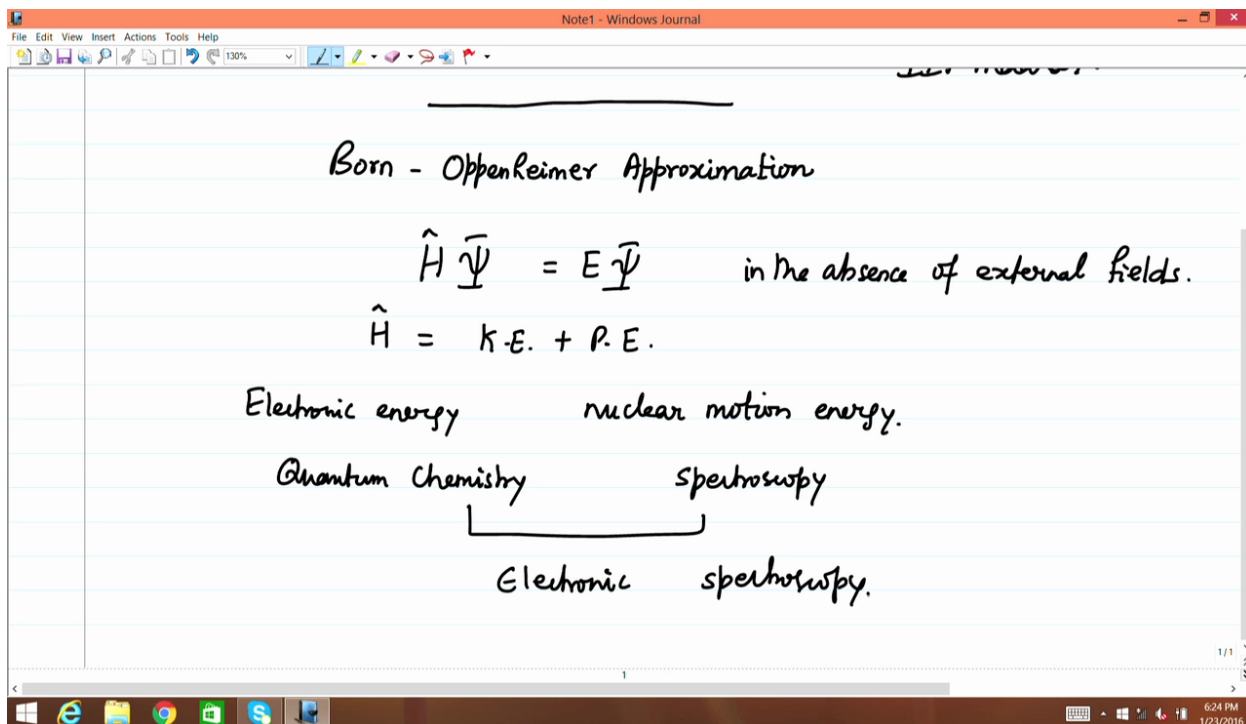 Note1 - Windows Journal
File Edit View Insert Actions Tools Help
130%
Born - Oppenheimer Approximation
Ĥ Ψ = E Ψ in the absence of external fields.
Ĥ = K.E. + P.E.
Electronic energy nuclear motion energy.
Quantum Chemistry spectroscopy
Electronic spectroscopy.
1/1
1
6:24 PM
1/23/2016